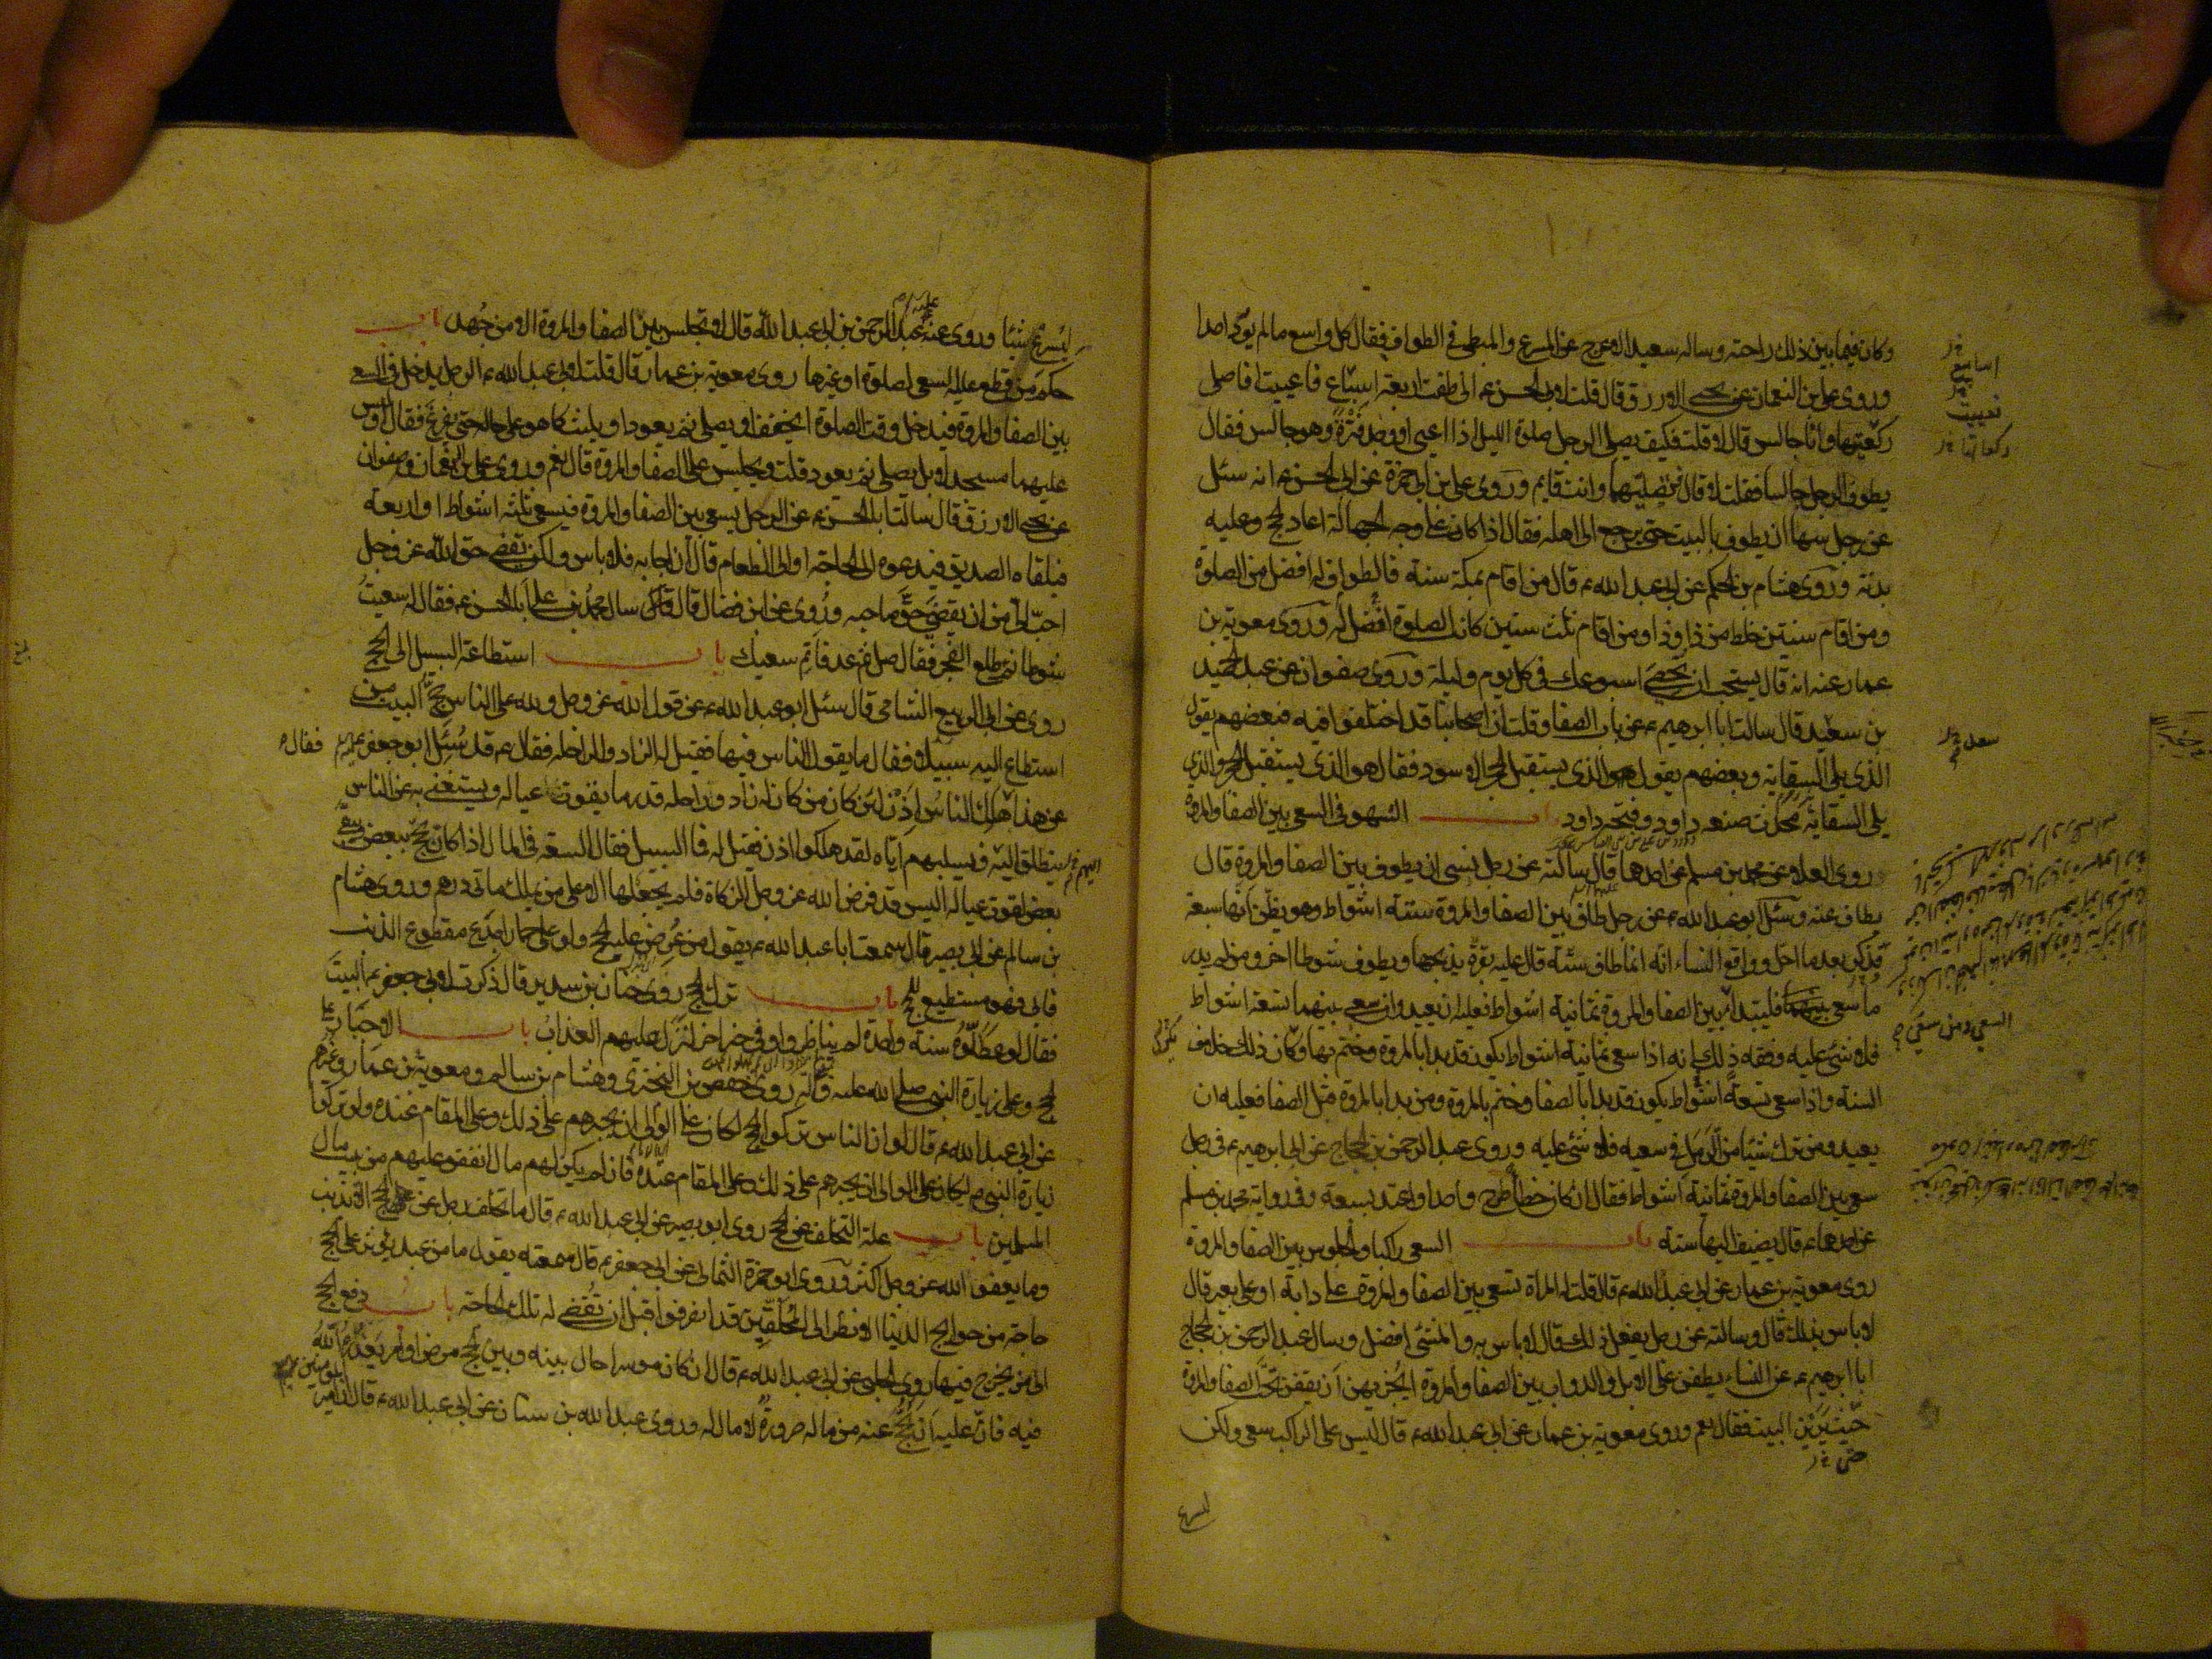 وكان فيما بين ذلك راحته وساله سعيد الاعرج عن المسرع والمبطئ في الطواف فقال كل واسع ما لم يؤد احدا
وروى علي بن النعمان عن يحيى الازرق قال قلت لابي الحسن ع اني طفت اربعة اسباع فاعييت افاصلي
ركعتيها وانا جالس قال لا قلت فكيف يصلي الرجل صلوة الليل اذا اعيى او وجد فترة وهو جالس فقال
يطوف الرجل جالسا فقلت لا قال فتصليهما وانت قايم وروى علي بن ابي حمزة عن ابي الحسن ع انه سئل
عن رجل سها ان يطوف بالبيت حتى يرجع الى اهله فقال اذا كان على وجه الجهالة اعاد الحج وعليه
بدنة وروى هشام بن الحكم عن ابي عبد الله ع قال من اقام بمكة سنة فالطواف له افضل من الصلوة
ومن اقام سنتين خلط من ذا وذا ومن اقام ثلث سنين كانت الصلوة افضل له وروى معوية بن
عمار عنه انه قال يستحب ان تحصي اسبوعك في كل يوم وليلة وروى صفوان عن عبد الحميد
بن سعيد قال سالت ابا ابرهيم ع عن باب الصفا وقلت ان اصحابنا قد اختلفوا فيه فبعضهم يقول
الذي يلي السقاية وبعضهم يقول هو الذي يستقبل الحجر الاسود فقال هو الذي يستقبل الحجر والذي
يلي السقاية محدث صنعه داود وفتحه داود باب السهو في السعي بين الصفا والمروة
روى العلاء عن محمد بن مسلم عن احدهما قال سالته عن رجل نسي ان يطوف بين الصفا والمروة قال
يطاف عنه وسئل ابو عبد الله ع عن رجل طاف بين الصفا والمروة ستة اشواط وهو يظن انها سبعة
فذكر بعد ما احل وواقع النساء انه انما طاف ستة قال عليه بقرة يذبحها ويطوف شوطا اخر ومن لم يدر
ما سعى بينهما فليبتدا السعي ومن سعى بين الصفا والمروة ثمانية اشواط فعليه ان يعيد وان سعى بينهما تسعة اشواط
فلا شئ عليه وفقه ذلك انه اذا سعى ثمانية اشواط يكون قد بدا بالمروة وختم بها وكان ذلك خلاف
السنة واذا سعى تسعة اشواط يكون قد بدا بالصفا وختم بالمروة ومن بدا بالمروة قبل الصفا فعليه ان
يعيد ومن ترك شيئا من الرمل في سعيه فلا شئ عليه وروى عبد الرحمن بن الحجاج عن ابي ابرهيم ع في رجل
سعى بين الصفا والمروة ثمانية اشواط فقال ان كان خطأ طرح واحدا واعتد بسبعة وفي رواية محمد بن مسلم
عن احدهما ع قال يضيف اليها ستة باب السعي راكبا والجلوس بين الصفا والمروة
روى معوية بن عمار عن ابي عبد الله ع قال قلت له المراة تسعى بين الصفا والمروة على دابة او على بعير قال
لا باس بذلك قال وسالته عن رجل يفعل ذلك قال لا باس به والمشئ افضل وسال عبد الرحمن بن الحجاج
ابا ابرهيم ع عن النساء يطفن على الابل والدواب بين الصفا والمروة ايجزيهن ان يقفن تحت الصفا والمروة
حيث يرين البيت فقال نعم وروى معوية بن عمار عن ابي عبد الله ع قال ليس على الراكب سعي ولكن
ليسرع
ليسرع شيئا وروى عنه عبد الرحمن بن ابي عبد الله قال لا تجلس بين الصفا والمروة الا من جهد باب
حكم من قطع عليه السعي لصلوة او غيرها روى معوية بن عمار قال قلت لابي عبد الله ع الرجل يدخل في السعي
بين الصفا والمروة فيدخل وقت الصلوة ايخفف او يصلي ثم يعود او يلبث كما هو على حاله حتى يفرغ فقال اوليس
عليهما مسجد لا بل يصلي ثم يعود قلت ويجلس على الصفا والمروة قال نعم وروى علي بن النعمان وصفوان
عن يحيى الازرق قال سالت ابا الحسن ع عن الرجل يسعى بين الصفا والمروة فيسعى ثلثة اشواط او اربعة
فيلقاه الصديق فيدعوه الى الحاجة او الى الطعام قال ان اجابه فلا باس ولكن يقضي حق الله عز وجل
احب الي من ان يقضي حق صاحبه وروى عن ابن فضال قال سال محمد بن علي ابا الحسن ع فقال له سعيت
شوطا ثم طلع الفجر فقال صل ثم عد فاتم سعيك باب استطاعة السبيل الى الحج
روى عن ابي الربيع الشامي قال سئل ابو عبد الله ع عن قول الله عز وجل ولله على الناس حج البيت من
استطاع اليه سبيلا فقال ما يقول الناس فيها فقيل له الزاد والراحلة فقال ع قد سئل ابو جعفر ع
عن هذا فقال هلك الناس اذن لئن كان من كان له زاد وراحلة قدر ما يقوت عياله ويستغني به عن الناس
ينطلق اليه فيسلبهم اياه لقد هلكوا اذن فقيل له فما السبيل فقال السعة في المال اذا كان يحج ببعض ويبقي
بعض لقوت عياله اليس قد فرض الله عز وجل الزكاة فلم يجعلها الا على من يملك مائتي درهم وروى هشام
بن سالم عن ابي بصير قال سمعت ابا عبد الله ع يقول من عرض عليه الحج ولو على حمار اجدع مقطوع الذنب
فابى فهو مستطيع للحج باب ترك الحج روى حنان بن سدير قال ذكرت لابي جعفر ع البيت
فقال لو عطلوه سنة واحدة لم يناظروا وفي خبر اخر لنزل عليهم العذاب باب الاجبار على
الحج وعلى زيارة النبي صلى الله عليه وآله روى حفص بن البختري وهشام بن سالم ومعوية بن عمار وغيرهم
عن ابي عبد الله ع قال لو ان الناس تركوا الحج لكان على الوالي ان يجبرهم على ذلك وعلى المقام عنده ولو تركوا
زيارة النبي ص لكان على الوالي ان يجبرهم على ذلك وعلى المقام عنده فان لم يكن لهم مال انفق عليهم من بيت مال
المسلمين باب علة التخلف عن الحج روى ابو بصير عن ابي عبد الله ع قال ما تخلف رجل عن الحج الا بذنب
وما يعفو الله عز وجل اكثر وروى ابو حمزة الثمالي عن ابي جعفر ع قال سمعته يقول ما من عبد يؤثر على الحج
حاجة من حوايج الدنيا الا نظر الى المحلقين قد انصرفوا قبل ان تقضى له تلك الحاجة باب دفع الحج
الى من يخرج فيها روى الحلبي عن ابي عبد الله ع قال ان كان موسرا حال بينه وبين الحج مرض او امر يعذره الله
فيه فان عليه ان يحج عنه من ماله صرورة لا مال له وروى عبد الله بن سنان عن ابي عبد الله ع قال ان امير المؤمنين